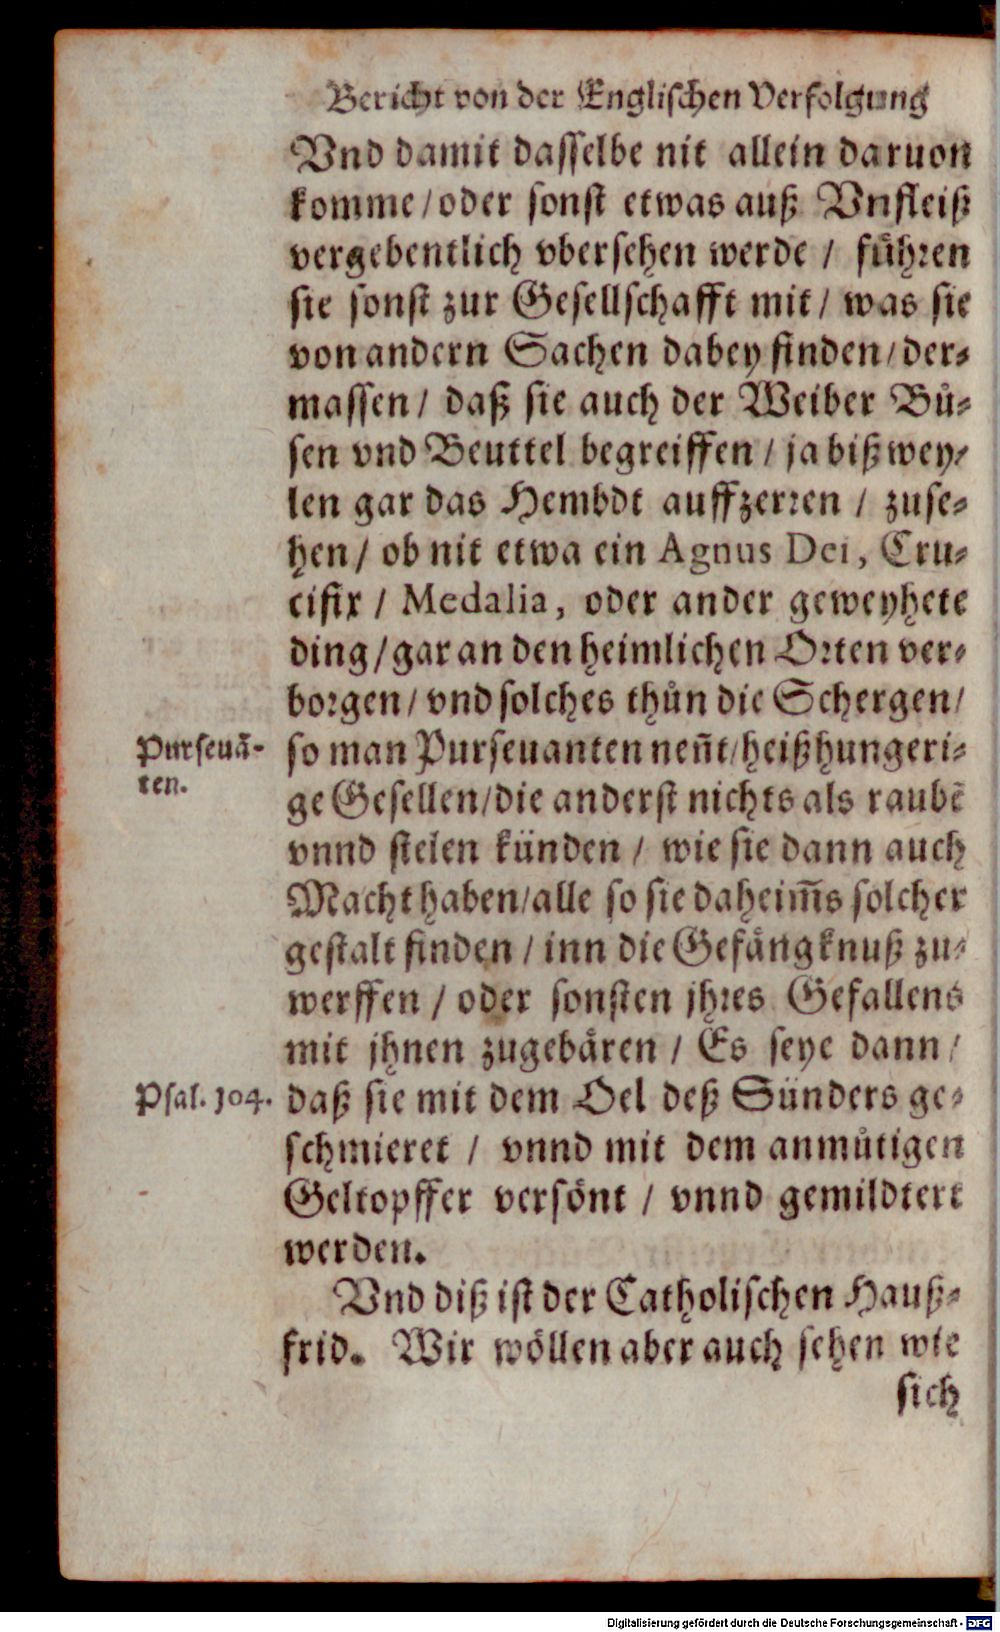 Bericht von der Englischen Verfolgung
Vnd damit dasselbe nit allein daruon
komme / oder sonst etwas auß Vnfleiß
vergebentlich vbersehen werde / fühꝛen
sie sonst zur Gesellschafft mit / was sie
von andern Sachen dabey finden / der-
massen / daß sie auch der Weiber Bů-
sen vnd Beuttel begreiffen / ja bißwey-
len gar das Hembdt auffzerꝛen / zuse-
hen / ob nit etwa ein Agnus Dei, Cru-
cifix / Medalia, oder ander geweyhete
ding / gar an den heimlichen Oꝛten ver-
boꝛgen / vnd solches thůn die Schergen /
Purseuā-
ten.
so man Purseuanten neñt / heißhungeri-
ge Gesellen / die anderst nichts als raubē
vnnd stelen künden / wie sie dann auch
Macht haben / alle so sie daheim̃s solcher
gestalt finden / inn die Gefängknuß zu-
werffen / oder sonsten jhꝛes Gefallens
mit jhnen zugebären / Es seye dann /
Psal. 104.
daß sie mit dem Oel deß Sünders ge-
schmieret / vnnd mit dem anmůtigen
Geltopffer versönt / vnnd gemildtert
werden.
Vnd diß ist der Catholischen Hauß-
frid. Wir wöllen aber auch sehen wie
sich
Digitalisierung gefördert durch die Deutsche Forschungsgemeinschaft - DFG